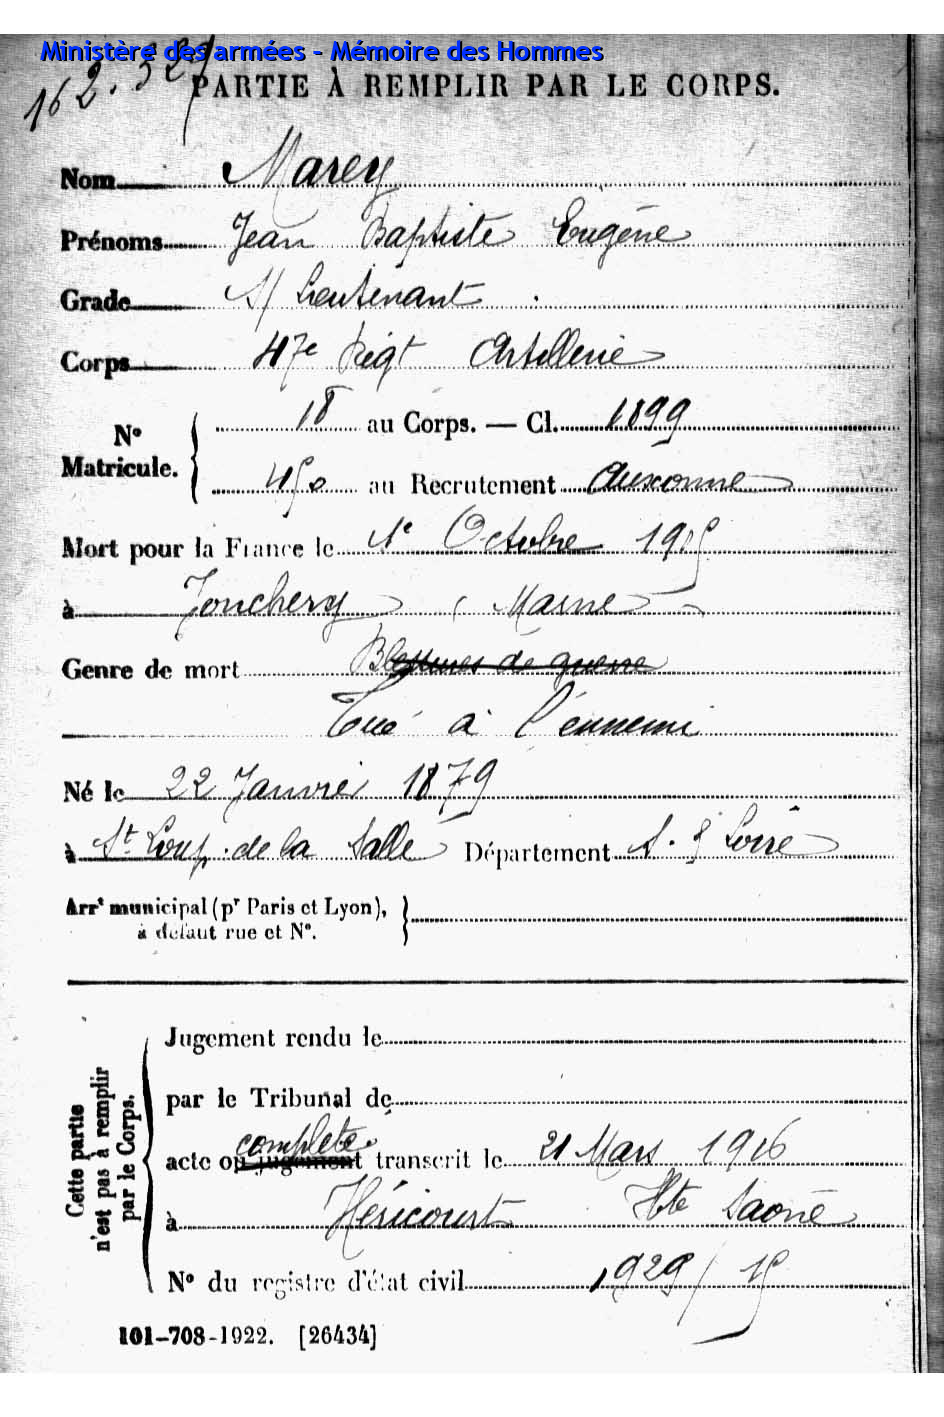 Ministère des armées - Mémoire des Hommes
162.327
PARTIE À REMPLIR PAR LE CORPS.
Nom Marey
Prénoms Jean Baptiste Eugène
Grade S/ Lieutenant
Corps 47e Régt Artillerie
N° Matricule. 18 au Corps. — Cl. 1899
450 au Recrutement Auxonne
Mort pour la France le 1e Octobre 1915
à Jonchery (Marne)
Genre de mort Blessures de guerre
Tué à l'ennemi
Né le 22 Janvier 1879
à St Loup de la Salle Département S. & Loire
Arrt municipal (pr Paris et Lyon),
à défaut rue et N°.
Cette partie n'est pas à remplir par le Corps.
Jugement rendu le
par le Tribunal de
complété.
acte ou jugement transcrit le 21 Mars 1916
à Héricourt Hte Saône
N° du registre d'état civil 1929/15
101-708-1922. [26434]